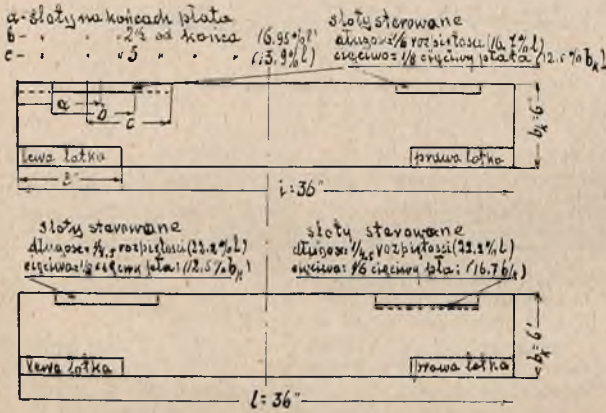 a - sloty na końcach płata
b - " " " 2½ od końca (6.95% l)
c - " " " 5 " " (13.9% l)
sloty sterowane
długość: 1/6 rozpiętości (16.7% l)
cięciwa: 1/8 cięciwy płata (12.5% bk)
a
b
c
bk = 6"
lewa lotka
prawa lotka
8"
l = 36"
sloty sterowane
długość: 1/4,5 rozpiętości (22.2% l)
cięciwa: 1/8 cięciwy płata: (12.5% bk)
sloty sterowane
długość: 1/4,5 rozpiętości (22.2% l)
cięciwa: 1/6 cięciwy płata: (16.7 bk)
bk = 6"
lewa lotka
prawa lotka
l = 36"